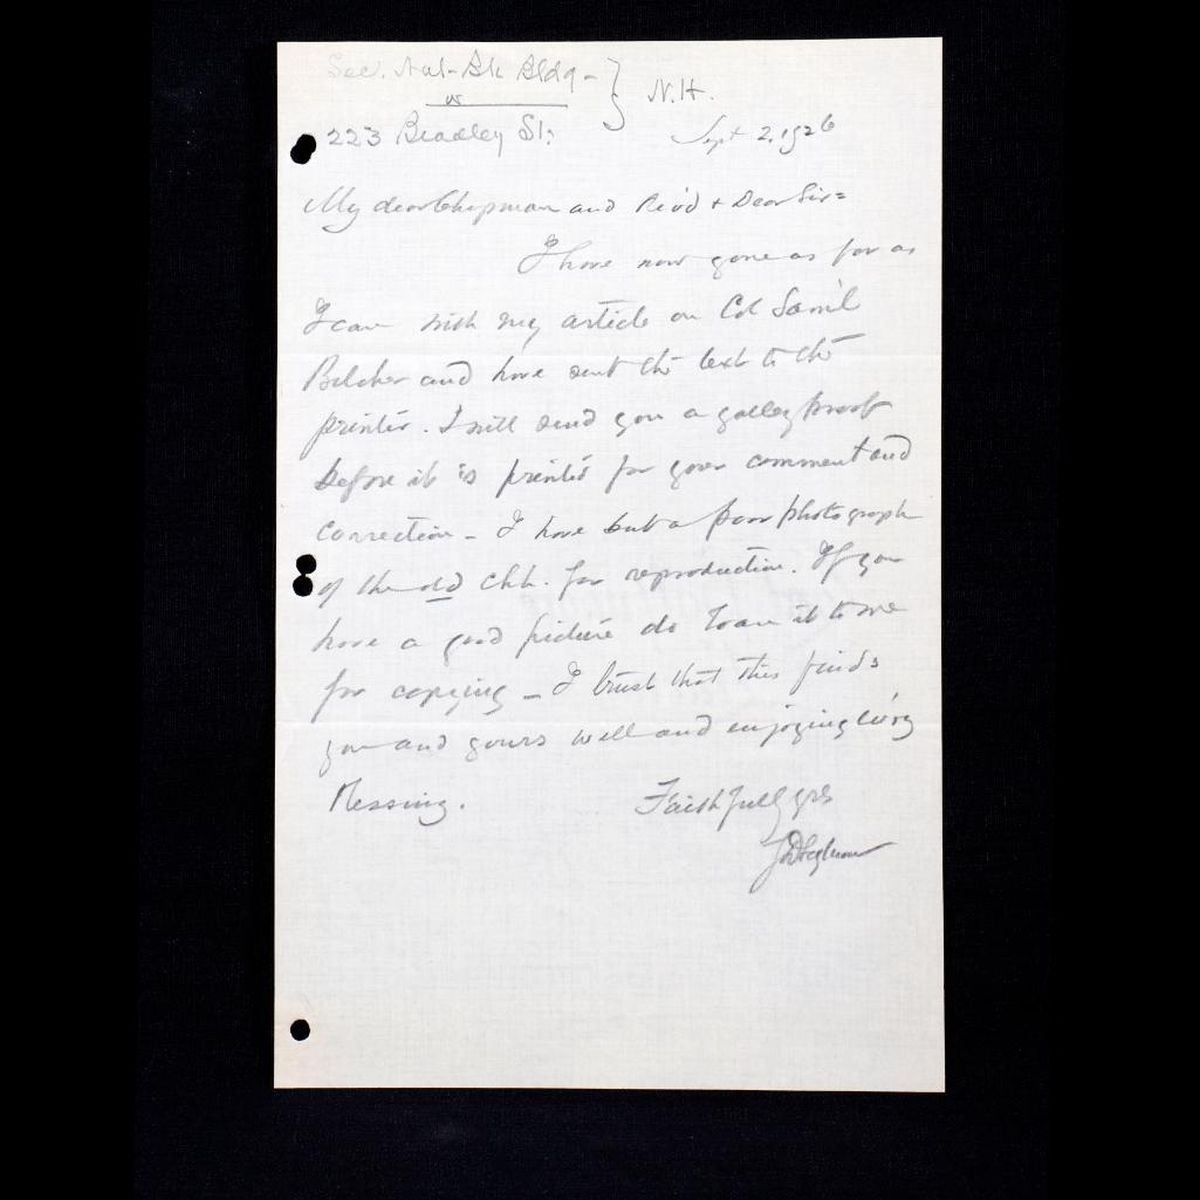 Sec. Nat- Bk Bldg- } N.H.
or
223 Bradley St:
Sept 2, 1926
My dear Chapman and Rev'd + Dear Sir=
I have now gone as far as
I can with my article on Col Sam'l
Belcher and have sent the text to the
printer. I will send you a galley proof
before it is printed for your comment and
correction - I have but a poor photograph
of the old chh. for reproduction. If you
have a good picture do loan it to me
for copying - I trust that this finds
you and yours well and enjoying every
blessing. Faithfully yrs